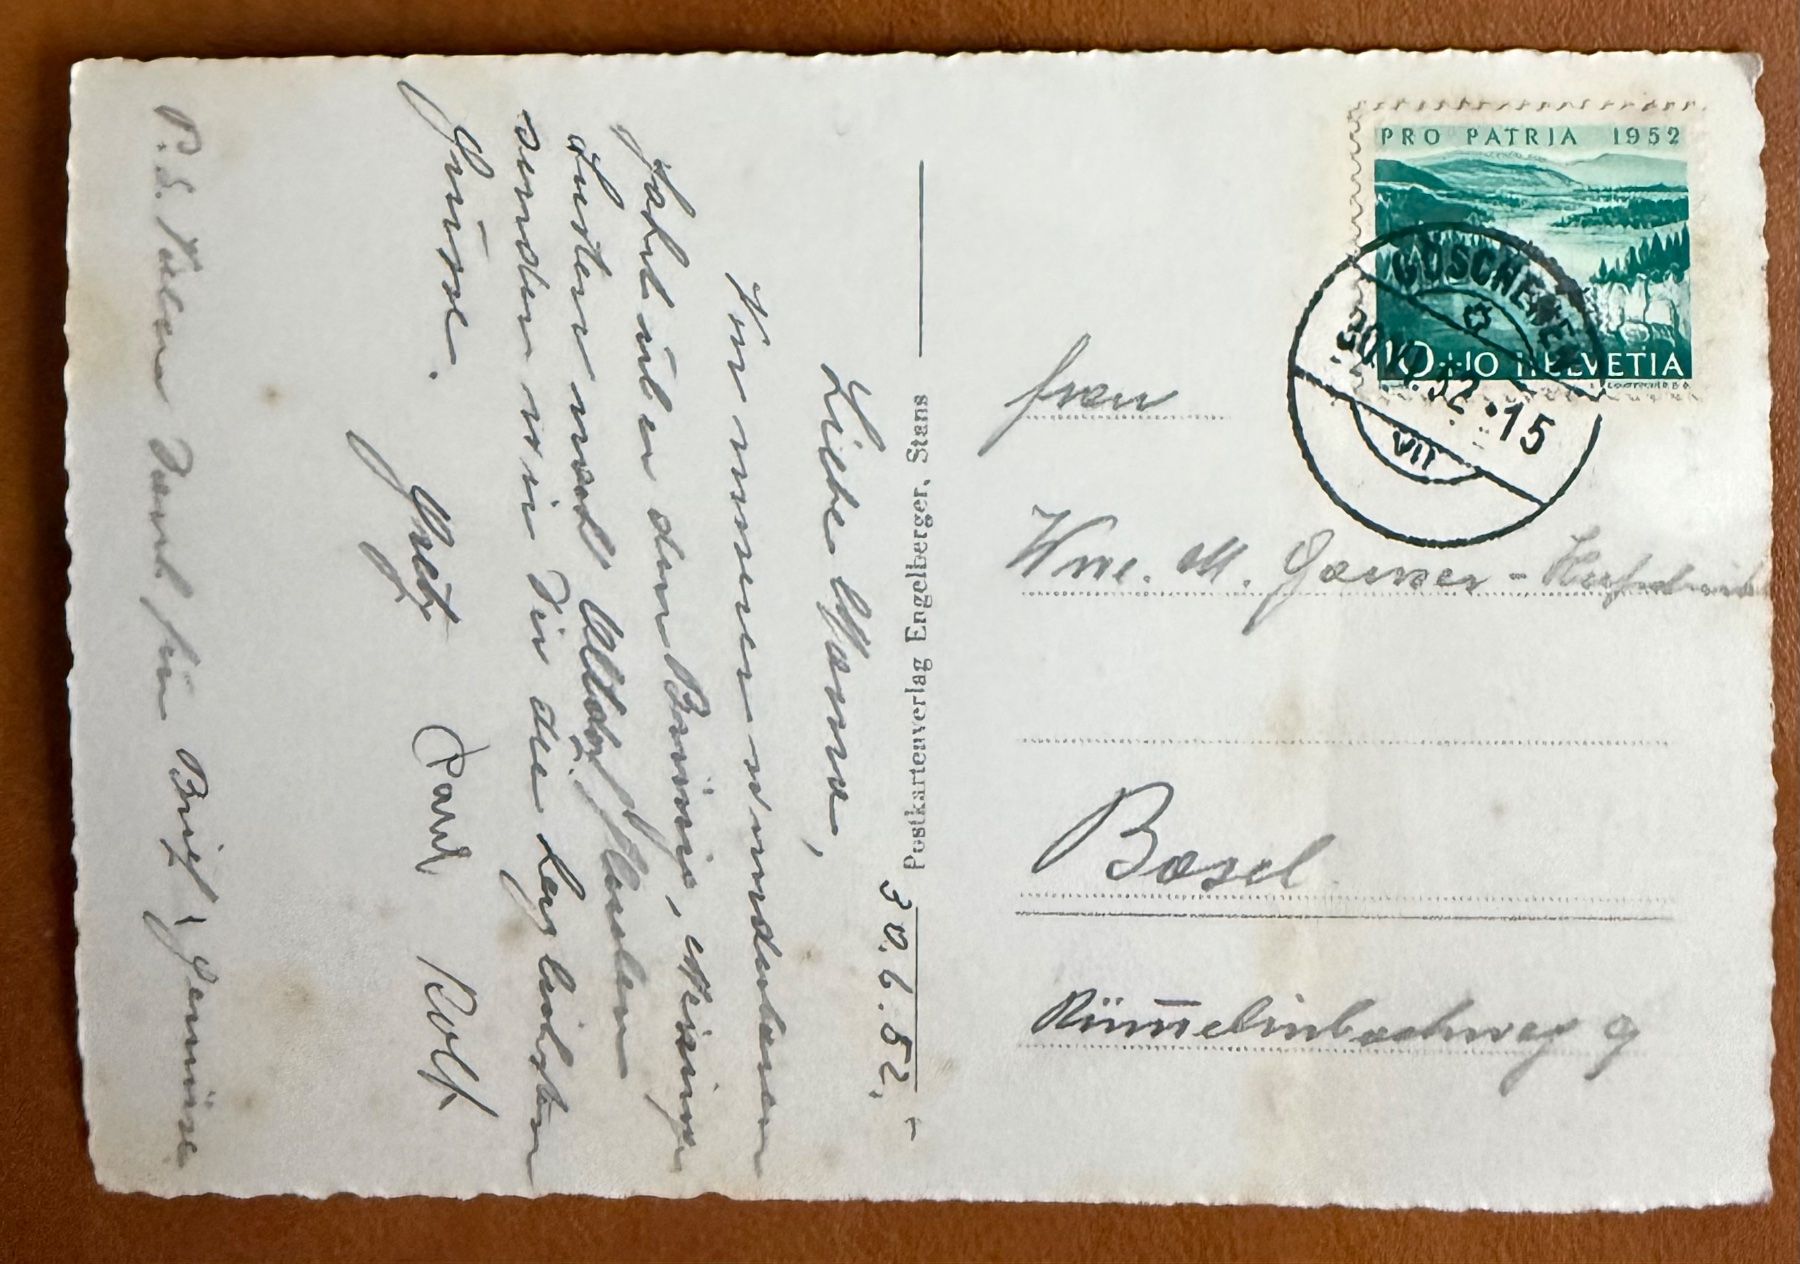 30.6.52.
Liebe Mama,
Von unserer wunderbaren
Fahrt über den Brünig, Meiringen
Susten nach Altdorf, Fluelen
senden wir Dir die herzlichsten
Grüsse.
Paul Rolf
P.S. Vielen Dank für Brief & Gemüse
Postkartenverlag Engelberger, Stans
PRO PATRIA 1952
10+10 HELVETIA
GÖSCHENEN
30.VI.52.15
VII
Frau
Wwe. M. Ganser-
Basel
Rümelinbachweg 9